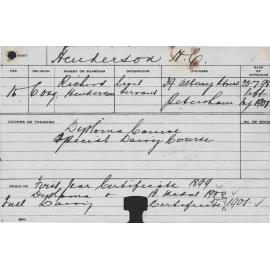 Henderson H. C.
AGE RELIGION PARENT OR GUARDIAN OCCUPATION ADDRESS DATE OF ENTRANCE
15 Cong Richard Henderson Civil Servant 39 Albany Street Petersham 25-7-98
COURSE OF TRAINING
Diploma Course
Special Dairy Course
RESULTS First Year Certificate 1899
Diploma & B. Medal
Full Dairy Certificate 1901